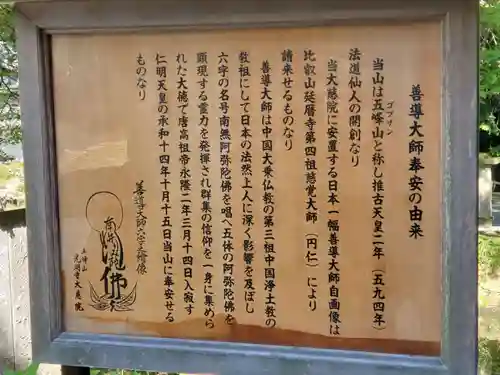 善導大師奉安の由来
当山は五峰山と称し推古天皇二年（五九四年）
ゴブサン
法道仙人の開創なり
当大慈院に安置する日本一幅善導大師自画像は
比叡山延暦寺第四祖慈覚大師（円仁）により
請来せるものなり
善導大師は中国大乗仏教の第三祖中国浄土教の
教祖にして日本の法然上人に深く影響を及ぼし
六字の名号南無阿弥陀佛を唱へ五体の阿弥陀佛を
顕現する霊力を発揮され群集の信仰を一身に集めら
れた大徳で唐高祖帝永隆二年三月十四日入寂す
仁明天皇の承和十四年十月十五日当山に奉安せる
ものなり
善導大師六字之繪像
南無阿弥陀佛
五峰山
光明寺大慈院